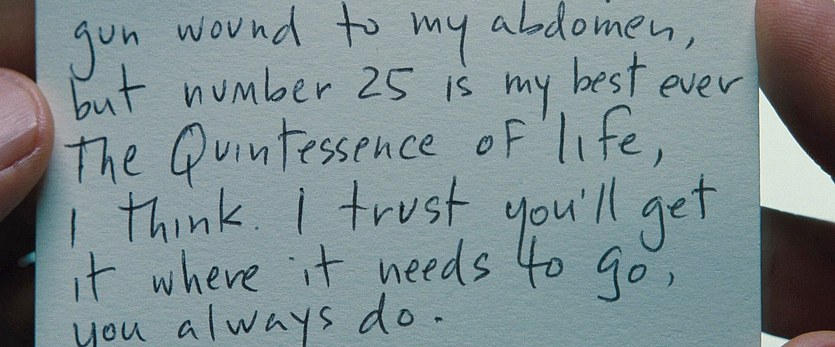 gun wound to my abdomen,
but number 25 is my best ever
The Quintessence of life,
I think. I trust you'll get
it where it needs to go,
you always do.